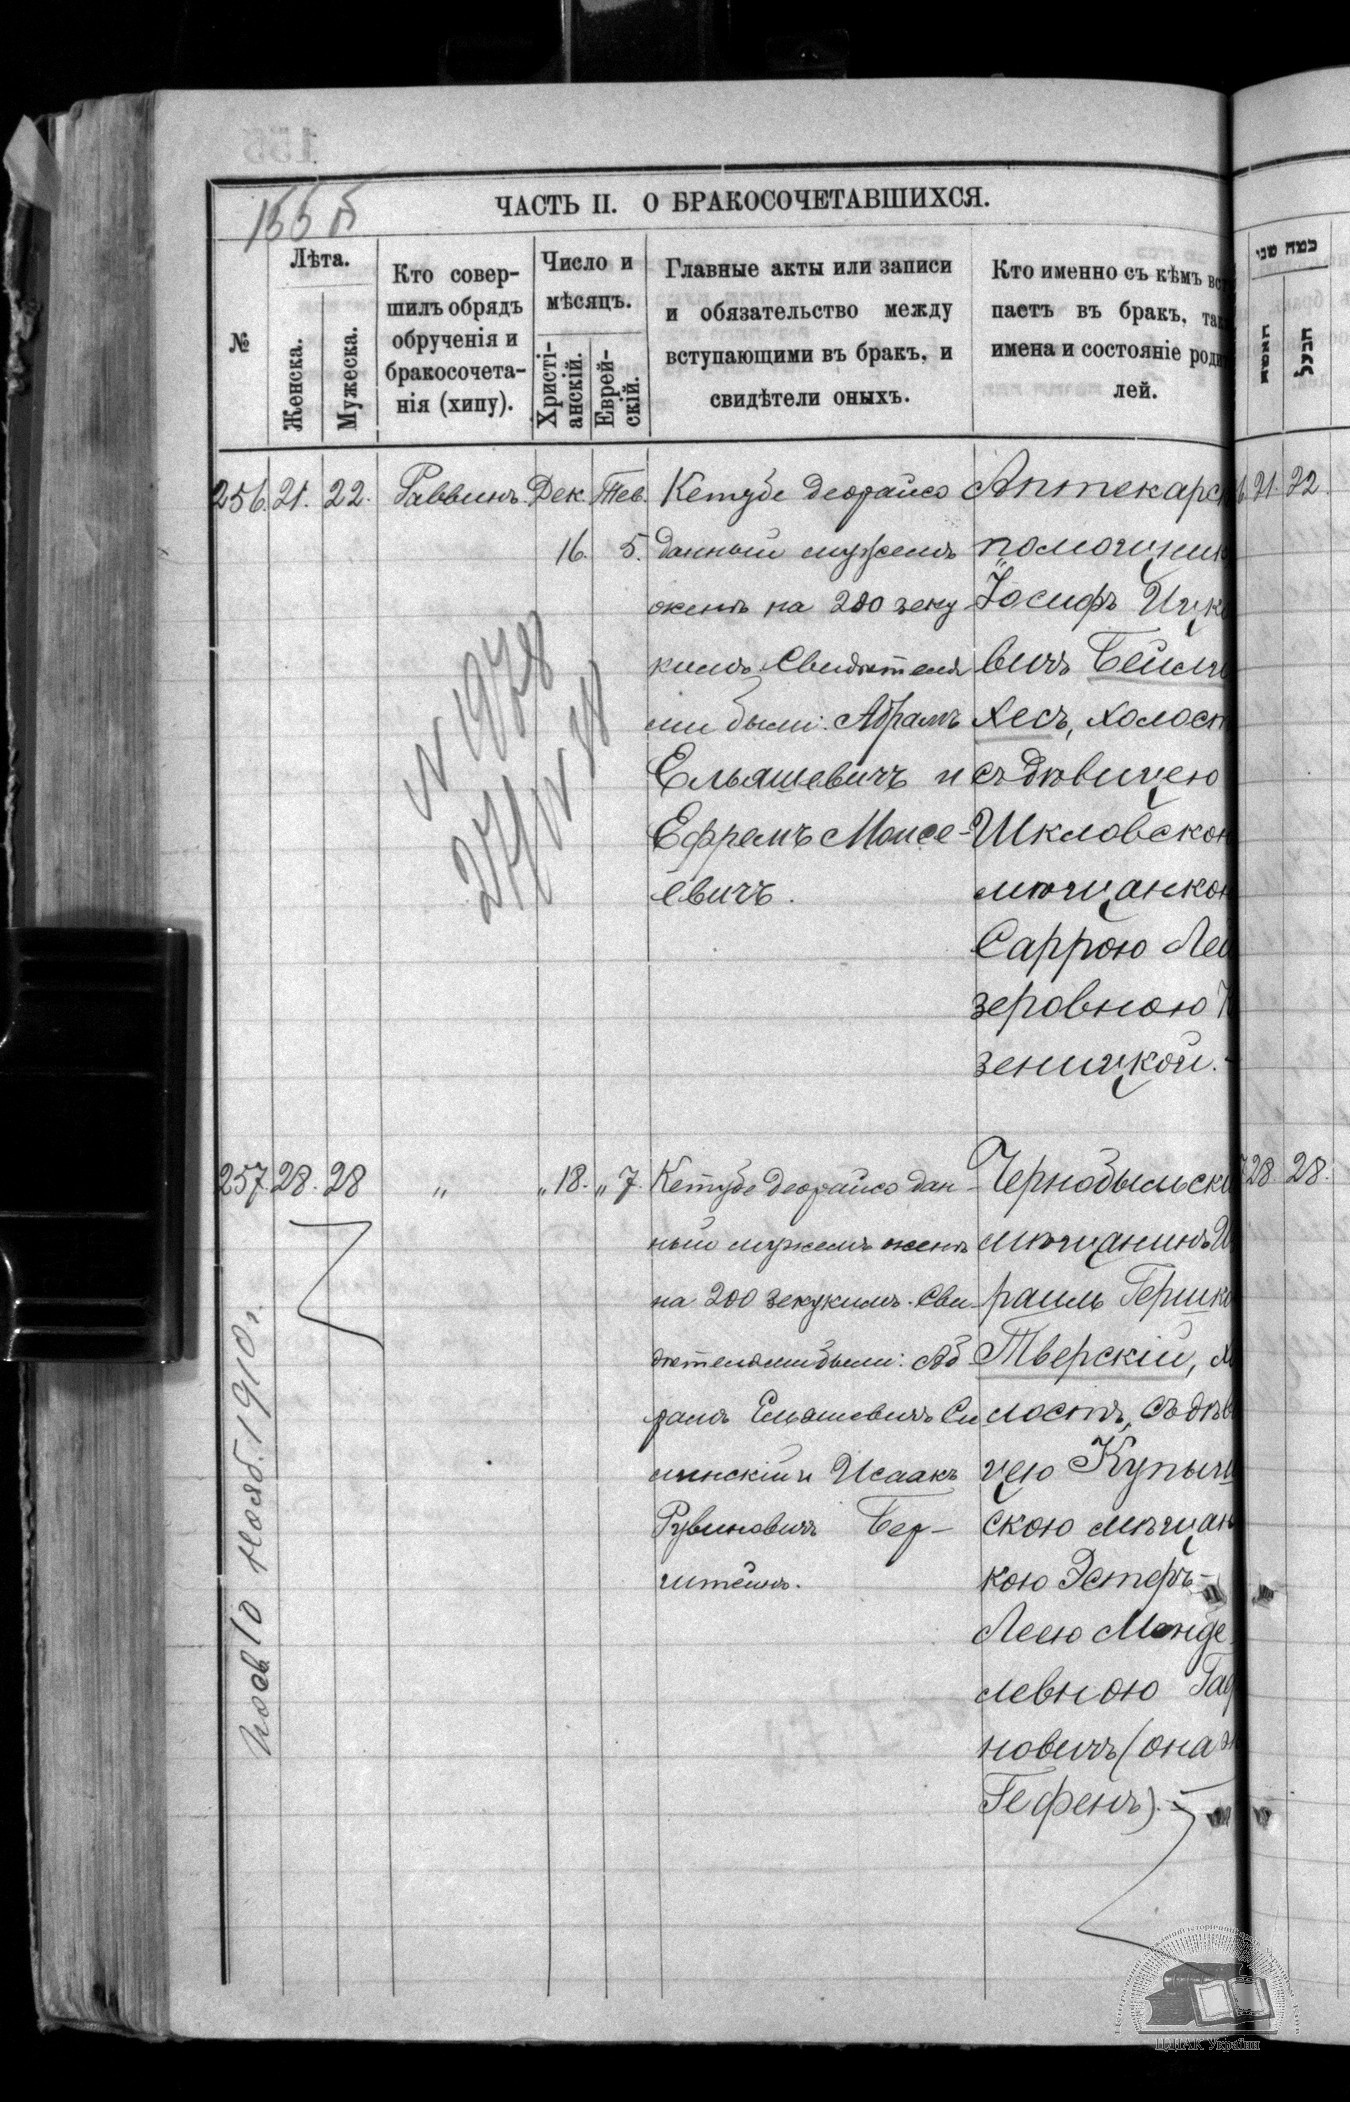 155 б
ЧАСТЬ II. О БРАКОСОЧЕТАВШИХСЯ.
№
Лѣта.
Женска.
Мужеска.
Кто совер-
шилъ обрядъ
обрученія и
бракосочета-
нія (хипу).
Число и
мѣсяцъ.
Христі-
анскій.
Еврей-
скій.
Главные акты или записи
и обязательство между
вступающими въ бракъ, и
свидѣтели оныхъ.
Кто именно съ кѣмъ вст
паетъ въ бракъ, так
имена и состояніе роди
лей.
כמה שני
האשה
הבעל
256. 21. 22. Раввинъ Дек. Тев.
16. 5.
Кетубе деорайсо
данный мужемъ
женѣ на 200 зеку
кимъ Свидѣтеля
ми были: Абрамъ
Ельяшевичъ и
Ефремъ Моисе-
евичъ.
Аптекарс
помощник
Іосифъ Ицко
вичъ Бейли
хесъ, холост
съ дѣвицею
Шкловскою
мѣщанкою
Саррою Лей
зеровною
зеницкой.
21. 22.
N 1978
257. 28. 28 " " 18. " 7.
Кетубе деорайсо дан
ный мужемъ женѣ
на 200 зекукимъ. Сви
дѣтелями были: Аб
рамъ Ельяшевичъ Си
минскій и Исаакъ
Рувиновичъ Бер-
штейнъ.
Чернобыльскі
мѣщанинъ Из
раиль Гершко
Тверскій, хо
лостъ, съ дѣви
цею Купыщ
скою мѣщан
кою Эстеръ-
Леею Менде
левною
новичъ (она ж
Гефенъ).
28 28.
10 Нояб. 1910 г.
ЦДІАК України